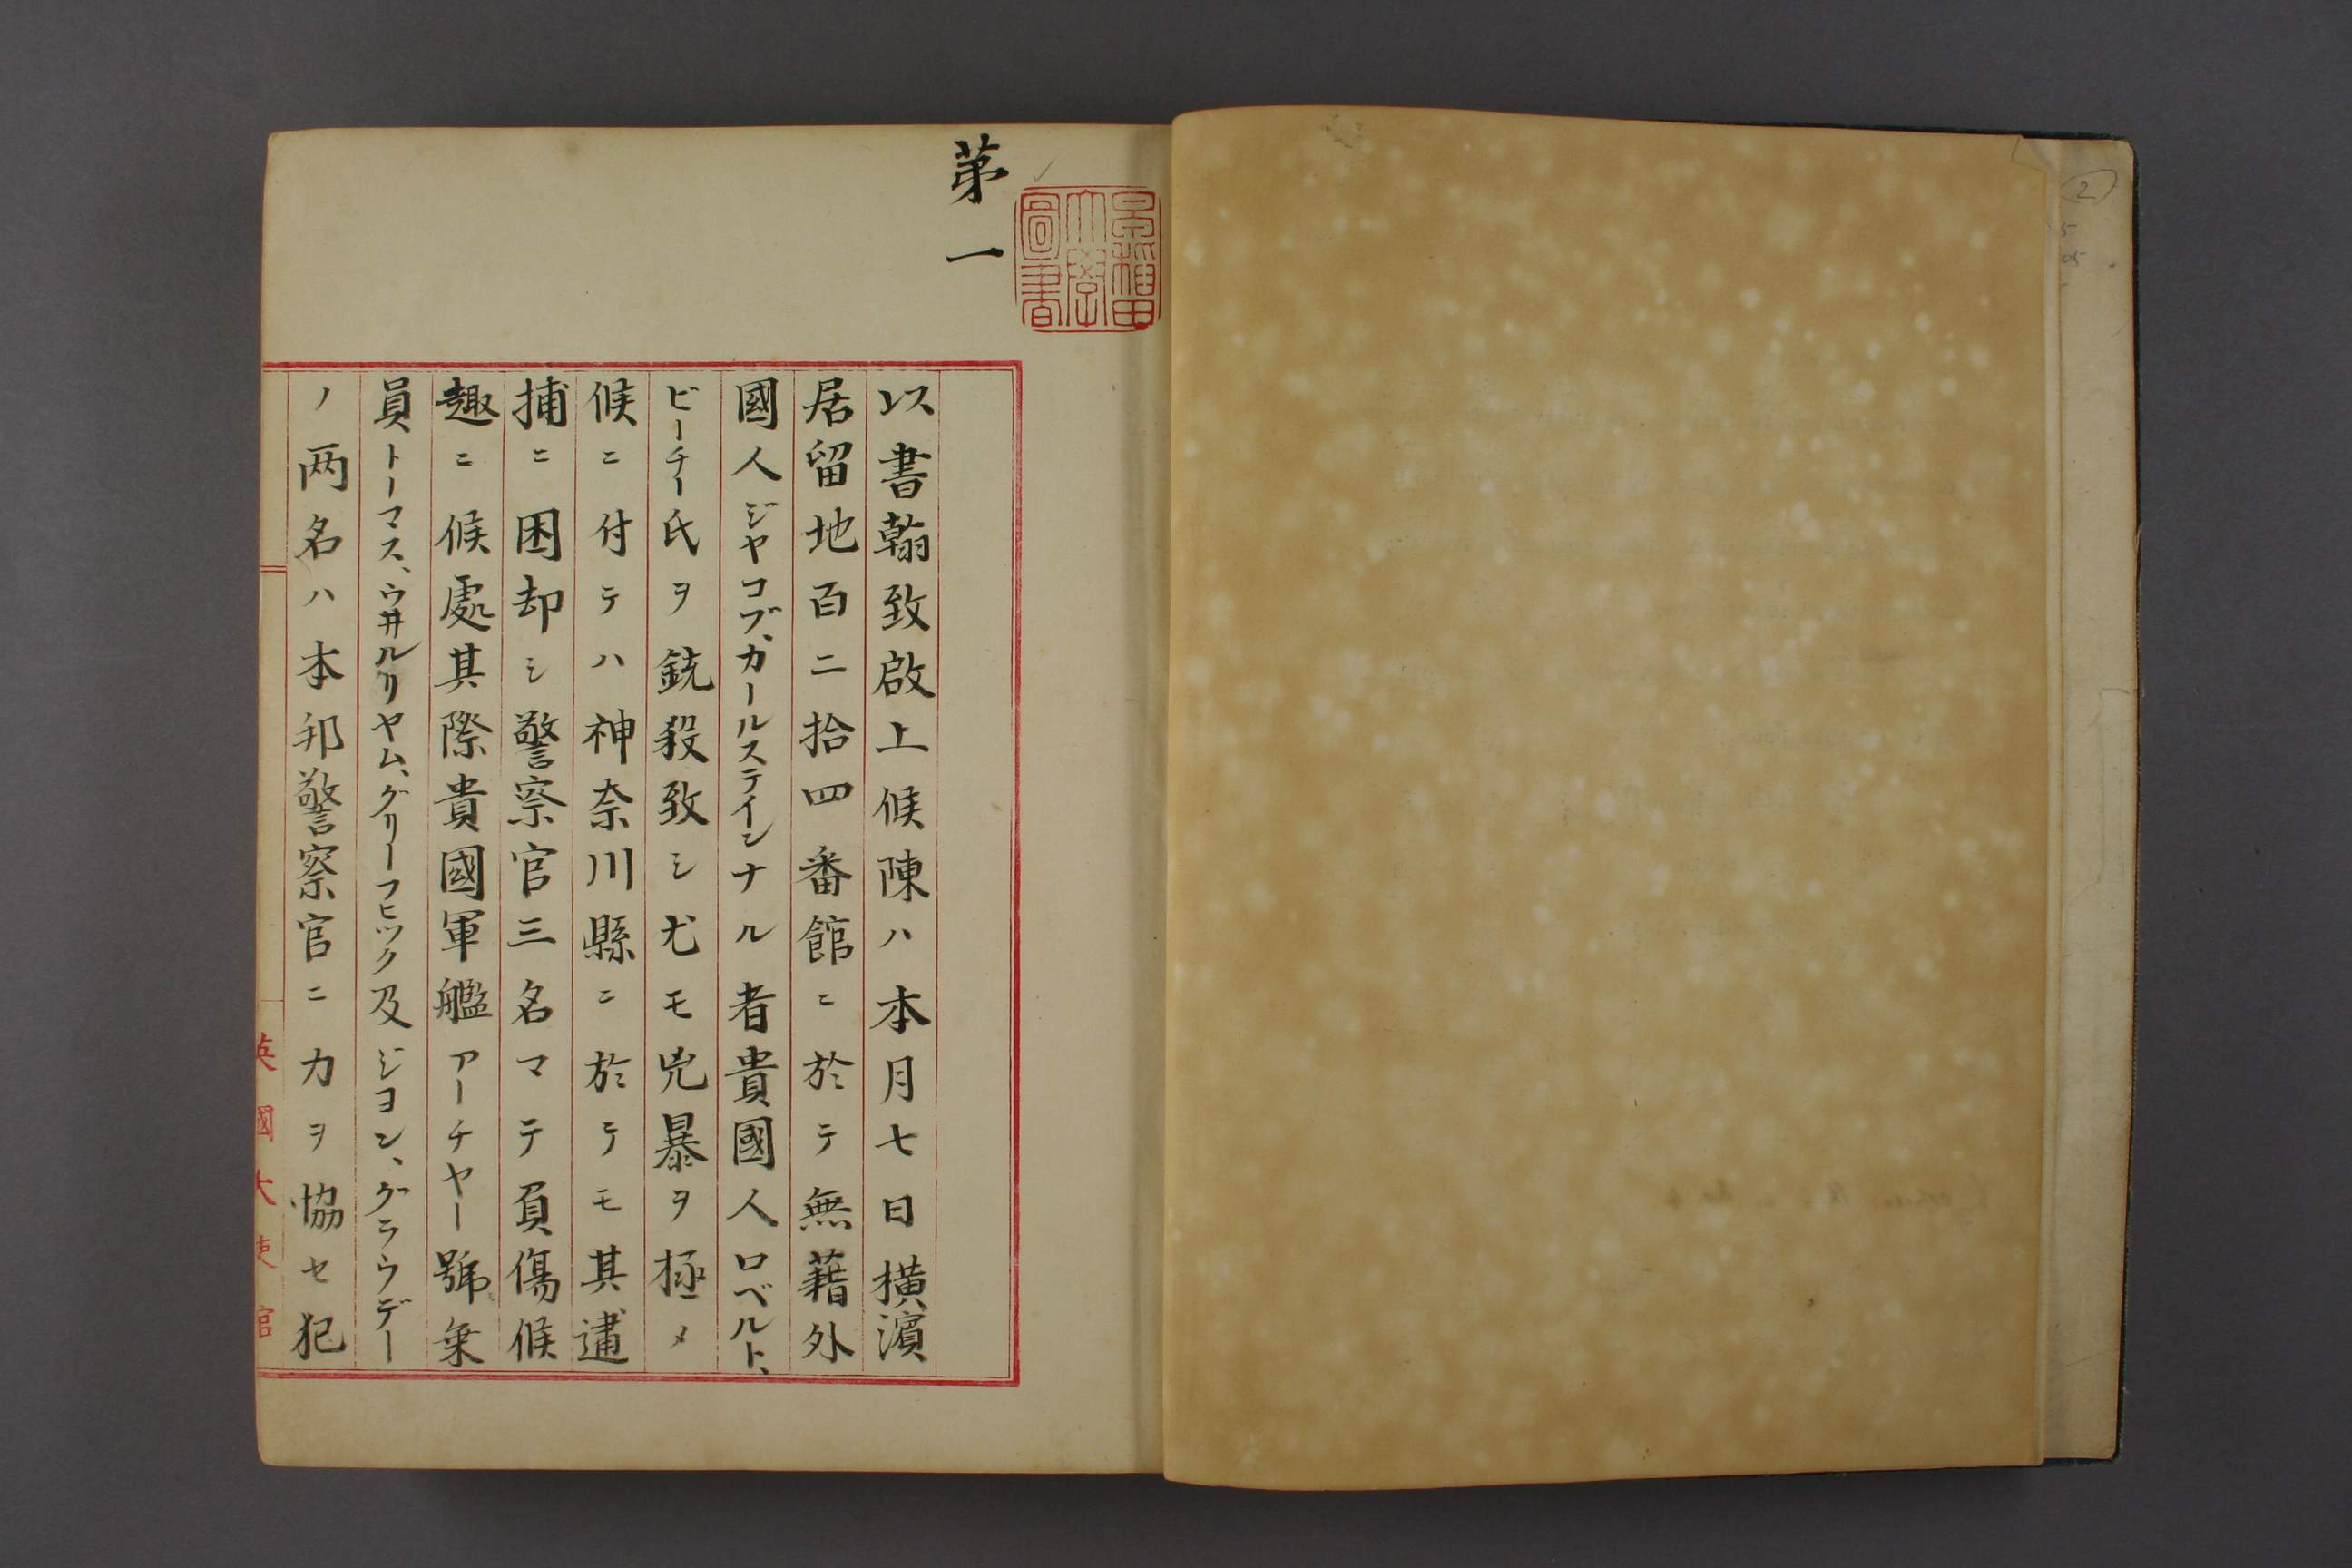 第一
早稲田大學圖書
以書翰致啟上候陳ハ本月七日横濱
居留地百二拾四番館ニ於テ無藉外
國人ジヤコブ、カールステインナル者貴國人ロベルト、
ビーチー氏ヲ銃殺致シ尤モ兇暴ヲ極メ
候ニ付テハ神奈川縣ニ於テモ其逮
捕ニ困却シ警察官三名マテ負傷候
趣ニ候處其際貴國軍艦アーチヤー號乗
員トーマス、ウ井ルリヤム、グリーフヒツク及ジヨン、グラウデー
ノ両名ハ本邦警察官ニ力ヲ協セ犯
英國大使館
2